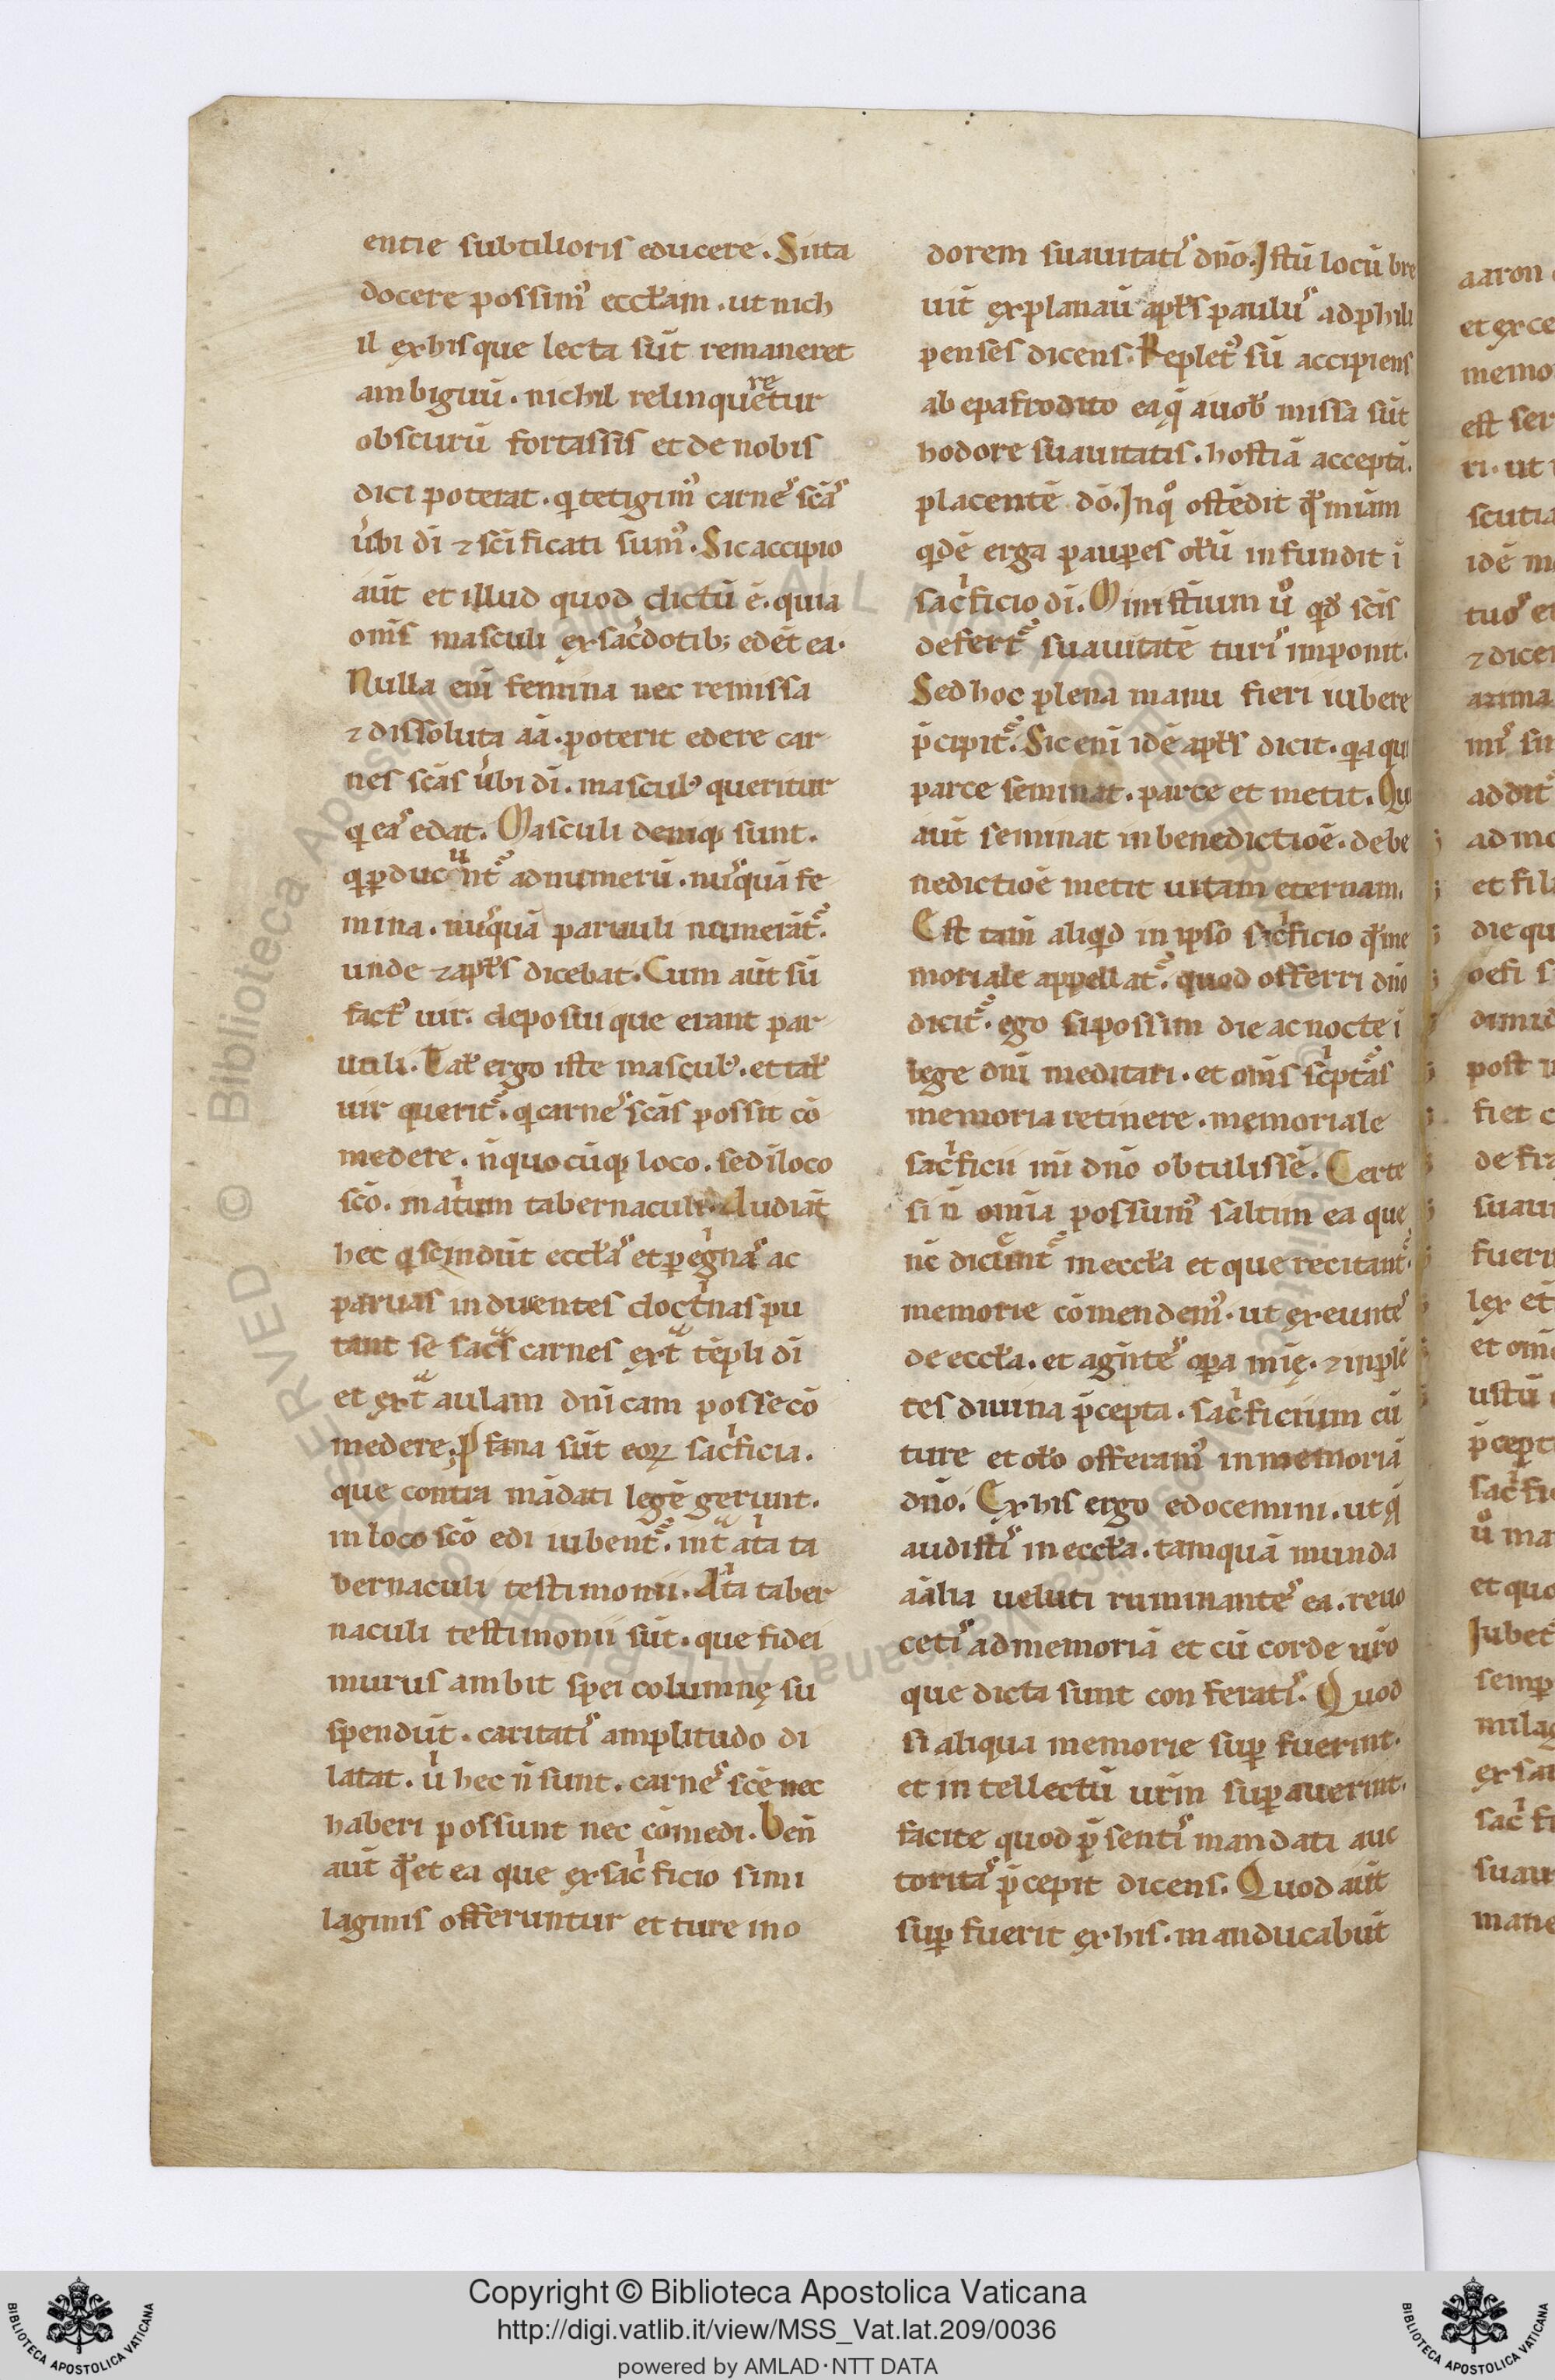 entie subtilioris educere. Si ita
docere possim᷒ eccłam. ut nich
il ex his que lecta sūt remaneret
ambiguū. nichil relinqueretur
obscurū fortassis et de nobis
dici poterat. q tetigim᷒ carnes scās
u̓bi dī ⁊ scīficati sum᷒. Sic accipio
aūt et illud quod dictū ē. quia
om̄s masculi ex sac̓dotib; edēt ea.
Nulla eni femina nec remissa
⁊ dissoluta aīa. poterit edere car
nes scās u̓bi dī. mascul᷒ queritur
q eas edat. Masculi deniq; sunt.
q ꝑducunt᷒ ad numerū. nusquā fe
mina. nusquā paruuli numerāt᷒.
unde ⁊ apłs dicebat. Cum aūt sū
fact᷒ uir. deposui que erant par
uuli. Tał ergo iste mascul᷒. et tał
uir querit᷒. q carnes scās possit cō
medere. n̄ quocūq; loco. sed ī loco
scō. infra atrium tabernaculi. Audiāt
hec q scindūt eccłas et peregrinas ac
prauas inducentes doctrinas pu
tant se sacras carnes extra tēpli dī
et extra aulam dn̄icam posse cō
medere. Ꝓfana sūt eoꝝ sacrificia.
que contra mādati legē gerunt.
in loco scō edi iubent᷒. intra atria ta
bernaculi testimonii. Atria taber
naculi testimonii sūt. que fidei
murus ambit spei columnę su
spendūt. caritatis amplitudo di
latat. u̓ hec n̄ sunt. carnes scē nec
haberi possunt nec cōmedi. Ben̄
aūt q et ea que ex sacrificio simi
laginis offeruntur et ture in o
dorem suauitatis dn̄o. Istū locū bre
uit̓ explanauit apłs paulus ad phili
penses dicens. Replet᷒ sū accipiens
ab epafrodito ea q̄ a uob᷒ missa sūt
hodore suauitatis. hostiā acceptā.
placentē dō. In qͦ ostēdit qd miām
qdē erga pauꝑes oleū infundit ī
sacrificio dī. Ministium uͦ qd scīs
defert᷒ suauitatē turis imponit.
Sed hoc plena manu fieri iubere
p̄cipit᷒. Sic eni idē apłs dicit. qa qui
parce seminat. parce et metit. Qui
aūt seminat in benedictioē. de be
nedictioē metit uitam eternam.
Est tam̄ aliqd in ipso sacrificio qd me
moriale appellat᷒. quod offerri dn̄o
dicit᷒. ego si possim die ac nocte ī
lege dn̄i meditari. et om̄s scripturas
memoria retinere. memoriale
sacrificii mi dn̄o obtulissē. Certe
si n̄ omīa possum᷒ saltim ea que
nc̄ dicunt᷒ in eccła et que recitant᷒.
memorie cōmendem᷒. ut exeuntes
de eccła. et agntes oꝑa mīę. ⁊ implē
tes diuina p̄cepta. sacrificium cū
ture et oleo offeram᷒ in memoriā
dn̄o. Ex his ergo edocemini. ut q̄
audistis in eccła. tamquā munda
aīalia ueluti ruminantes ea. reuo
cetis ad memoriā et cū corde uro
que dicta sunt conferatis. Quod
si aliqua memorie suꝑ fuerint.
et intellectū urm̄ suꝑauerint.
facite quod p̄sentis mandati auc
toritas p̄cepit dicens. Quod aūt
suꝑ fuerit ex his. manducabūt
Copyright © Biblioteca Apostolica Vaticana
http://digi.vatlib.it/view/MSS_Vat.lat.209/0036
powered by AMLAD·NTT DATA
BIBLIOTECA APOSTOLICA VATICANA
BIBLIOTECA APOSTOLICA VATICANA